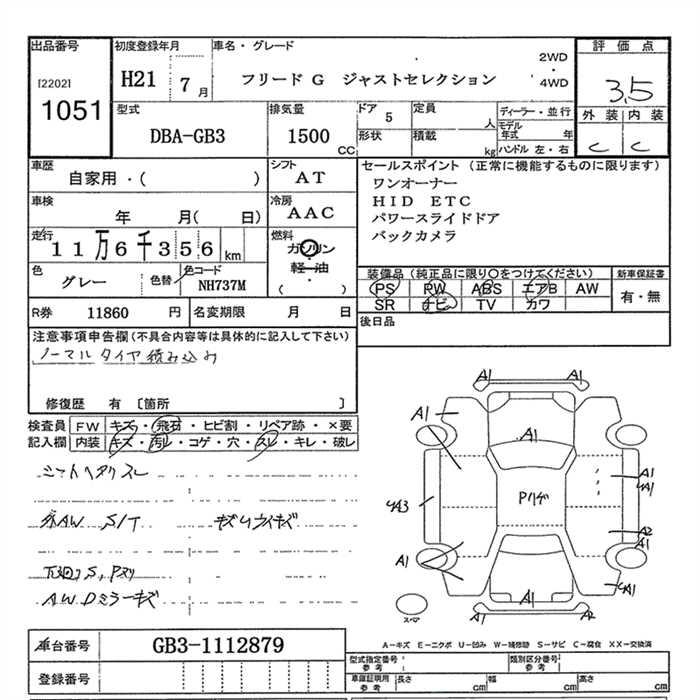 出品番号 初度登録年月 車名・グレード 評価点
[2202] H21 7月 フリード G ジャストセレクション 2WD・4WD 3.5
1051
外装 内装
C C
型式 排気量 ドア 定員 ディーラー・並行
DBA-GB3 1500 CC 5 人 モデル年式 年
形状 積載 kg ハンドル 左・右
車歴 シフト セールスポイント (正常に機能するものに限ります)
自家用・( ) AT ワンオーナー
車検 冷房 HID ETC
年 月( 日) AAC パワースライドドア
走行 燃料 バックカメラ
11万6千356 km ガソリン
軽・油
・
( )
色 色替 色コード
グレー NH737M
装備品 (純正品に限り○をつけてください) 新車保証書
PS PW ABS エアB AW 有・無
SR ナビ TV カワ
R券 11860 円 名変期限 月 日
後日品
注意事項申告欄(不具合内容等は具体的に記入して下さい)
ノーマルタイヤ積み込み
修復歴 有 [箇所 ]
検査員 FW キズ・飛石・ヒビ割・リペア跡・×要
記入欄 内装 キズ・汚レ・コゲ・穴・スレ・キレ・破レ
シートヘタリ スレ
外AW S/T
下廻りS,Pスリ
AWDミラーキズ
A1 A1
A1
A1
Pリゲ
A1
A3
A1
A2
A1
A1
A1
A1 A2
スペア
A-キズ E-エクボ U-凹み W-補修跡 S-サビ C-腐食 XX-交換済
車台番号 GB3-1112879
登録番号
型式指定番号 参考 類別区分番号 参考
車庫証明用 参考 長さ cm 幅 cm 高さ cm